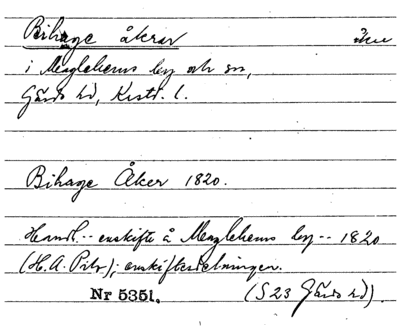 Bihage åkrar åker
i Maglehems by och sn,
Gärds hd, Krist. l.
Bihage Åker 1820.
Handl. -- enskifte å Maglehems by -- 1820
(H.A. Prtr); enskiftesdelningen.
Nr 5351. (S 23 Gärds hd).